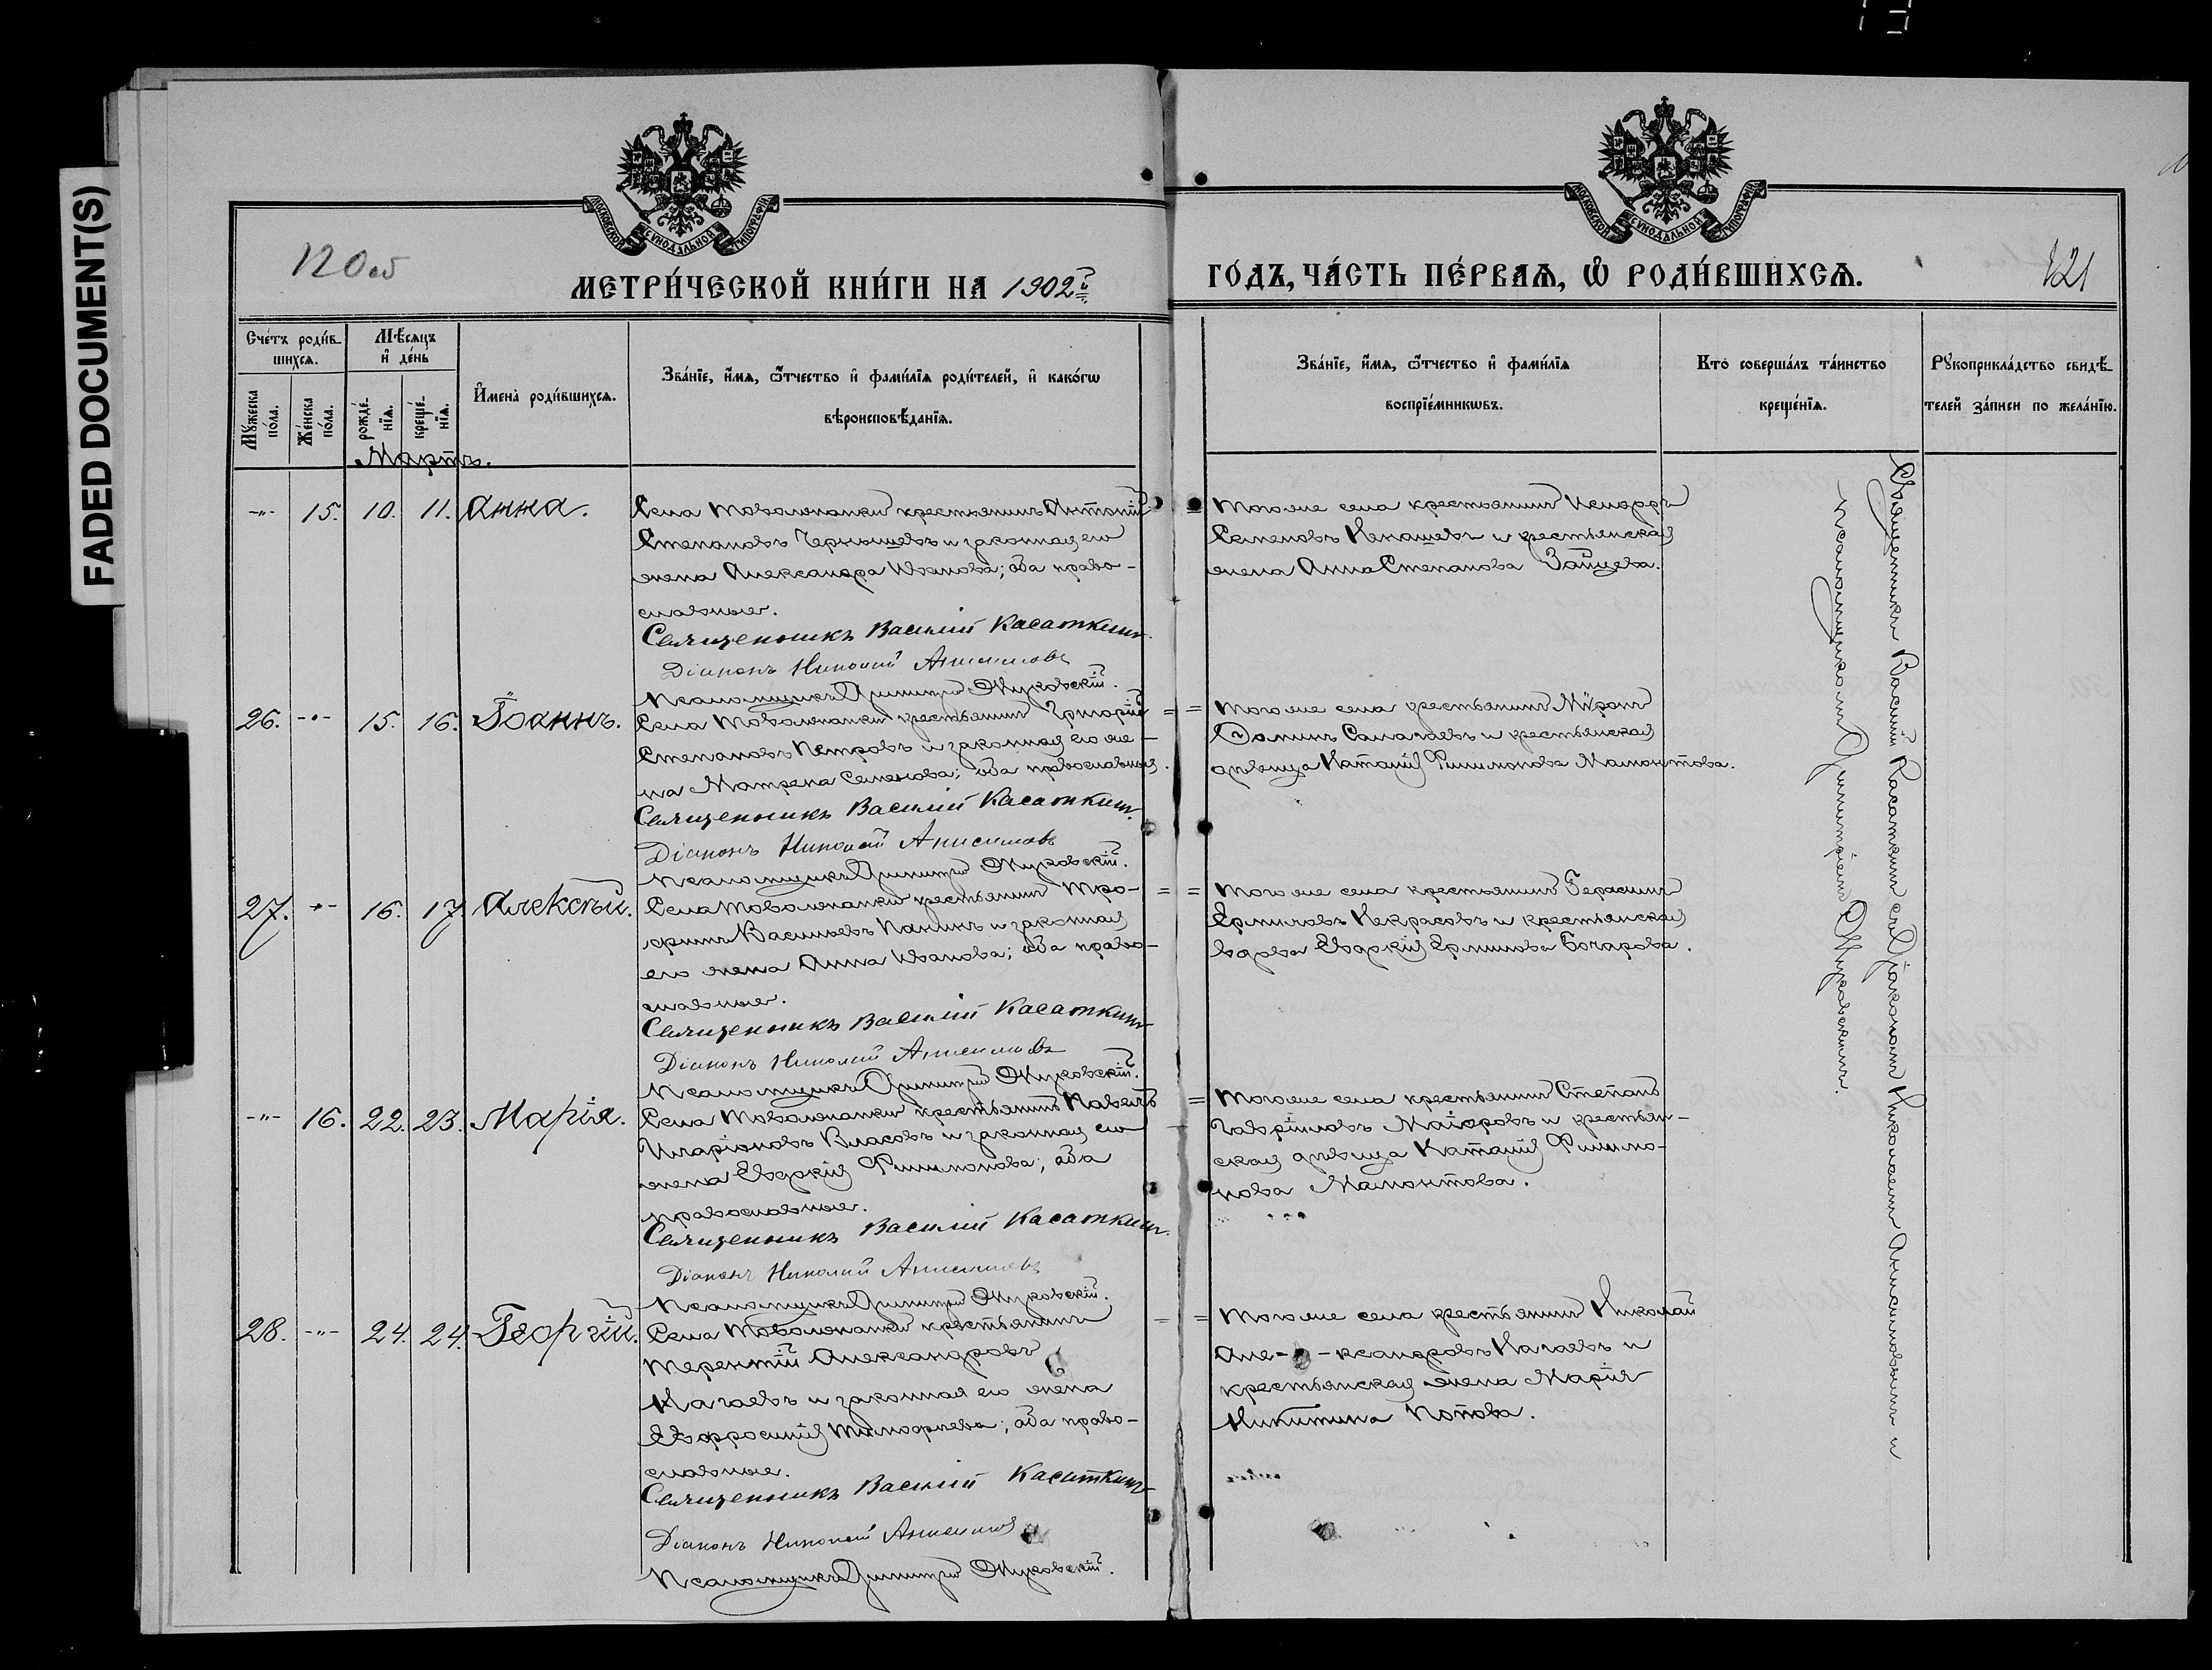 FADED DOCUMENT(S)
МОСКОВСКОЙ СѴНОДАЛЬНОЙ ТИПОГРАФІИ
МОСКОВСКОЙ СѴНОДАЛЬНОЙ ТИПОГРАФІИ
120об
121
МЕТРИ́ЧЕСКОЙ КНИ́ГИ НА 1902й
ГО́ДЪ, ЧА́СТЬ ПЕ́РВАѦ, Ѡ РОДИ́ВШИХСѦ.
Сче́тъ роди́в-
шихсѧ.
Мѣ́сѧцъ
и҆ де́нь
Мꙋ́жеска
по́ла.
Же́нска
по́ла.
рожде́-
нїѧ.
креще́-
нїѧ.
И҆мена̀ роди́вшихсѧ.
Зва́нїе, и҆́мѧ, ѻ҆́тчество и҆ фами́лїѧ роди́телей, и҆ како́гѡ
вѣроисповѣ́данїѧ.
Зва́нїе, и҆́мѧ, ѻ҆́тчество и҆ фами́лїѧ
воспрїе́мникѡвъ.
Кто̀ соверша́лъ та́инство
креще́нїѧ.
Рꙋкоприкла́дство свидѣ́-
телей за́писи по жела́нїю.
Мартъ.
-„- 15. 10. 11. Анна.
Села Товолжанки крестьянинъ Антоній
Степановъ Чернышевъ и законная его
жена Александра Иванова; оба право-
славные.
Священникъ Василій Касаткинъ
Діаконъ Николай Анисимовъ
Псаломщикъ Димитрій Жуковскій.
Того же села крестьянинъ Исидоръ
Семеновъ Кенашевъ и крестьянская
жена Анна Степанова Зайцева.
26. -„- 15. 16. Іоаннъ.
Села Товолжанки крестьянинъ Григорій
Степановъ Петровъ и законная его же-
на Матрена Семенова; оба православные.
Священникъ Василій Касаткинъ.
Діаконъ Николай Анисимовъ
Псаломщикъ Димитрій Жуковскій.
Того же села крестьянинъ Мѵронъ
Ѳоминъ Салагаевъ и крестьянская
дѣвица Наталія Филимонова Мамонтова.
27. -„- 16. 17 Алексѣй.
Села Товолжанки крестьянинъ Тро-
фимъ Васильевъ Панинъ и законная
его жена Анна Иванова; оба право-
славные.
Священникъ Василій Касаткинъ
Діаконъ Николай Анисимовъ
Псаломщикъ Димитрій Жуковскій.
Того же села крестьянинъ Герасимъ
Ермиловъ Некрасовъ и крестьянская
вдова Евдокія Ермилова Бочарова.
-„- 16. 22. 23. Марія.
Села Товолжанки крестьянинъ Павелъ
Иларіоновъ Власовъ и законная его
жена Евдокія Филимонова; оба
православные.
Священникъ Василій Касаткинъ.
Діаконъ Николай Анисимовъ
Псаломщикъ Димитрій Жуковскій.
Того же села крестьянинъ Стефанъ
Гавріиловъ Маіоровъ и крестьян-
ская дѣвица Наталія Филимо-
нова Мамонтова.
28. -„- 24. 24. Георгій.
Села Товолжанки крестьянинъ
Терентій Александровъ
Нагаевъ и законная его жена
Евфросинія Тимофеева; оба право-
славные.
Священникъ Василій Касаткинъ
Діаконъ Николай Анисимовъ
Псаломщикъ Димитрій Жуковскій.
Того же села крестьянинъ Николай
Але-ксандровъ Нагаевъ и
крестьянская жена Марія
Никитина Попова.
Священникъ Василій Касаткинъ съ Діакономъ Николаемъ Анисимовымъ и
псаломщикомъ Димитріемъ Жуковскимъ.